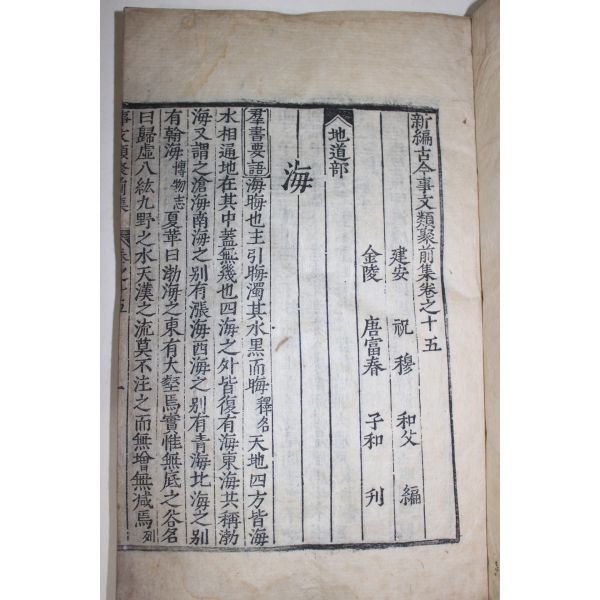 新編古今事文類聚前集卷之十五
建安 祝穆 和父 編
金陵 唐富春 子和 刊
地道部
海
羣書要語海晦也主引晦濁其水黑而晦釋名天地四方皆海
水相通地在其中蓋無幾也四海之外皆復有海東海共稱渤
海又謂之滄海南海之别有漲海西海之别有青海北海之别
有翰海博物志夏革曰渤海之東有大壑焉實惟無底之谷名
曰歸虛八紘九野之水天漢之流莫不注之而無增無減焉列
事文類聚前集 卷之十五 一